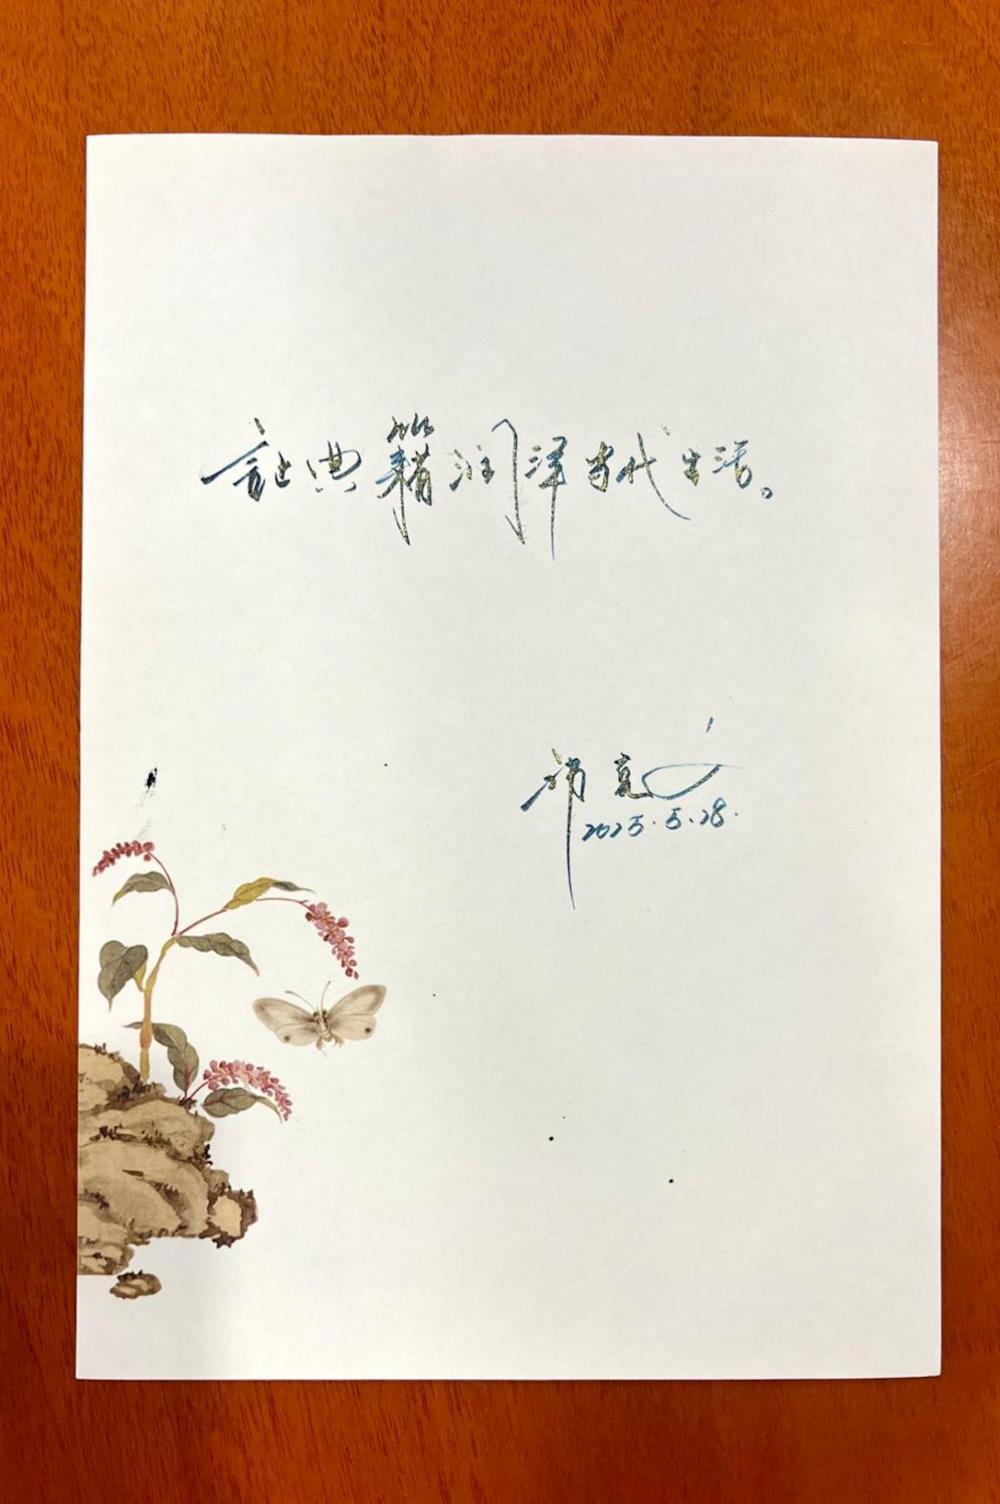 让典籍润泽当代生活。
2025.5.28.